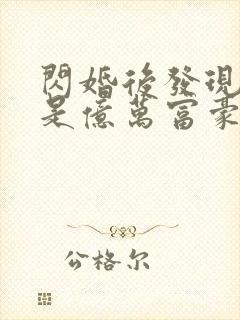 閃婚後發現
是億萬富豪
公格尔